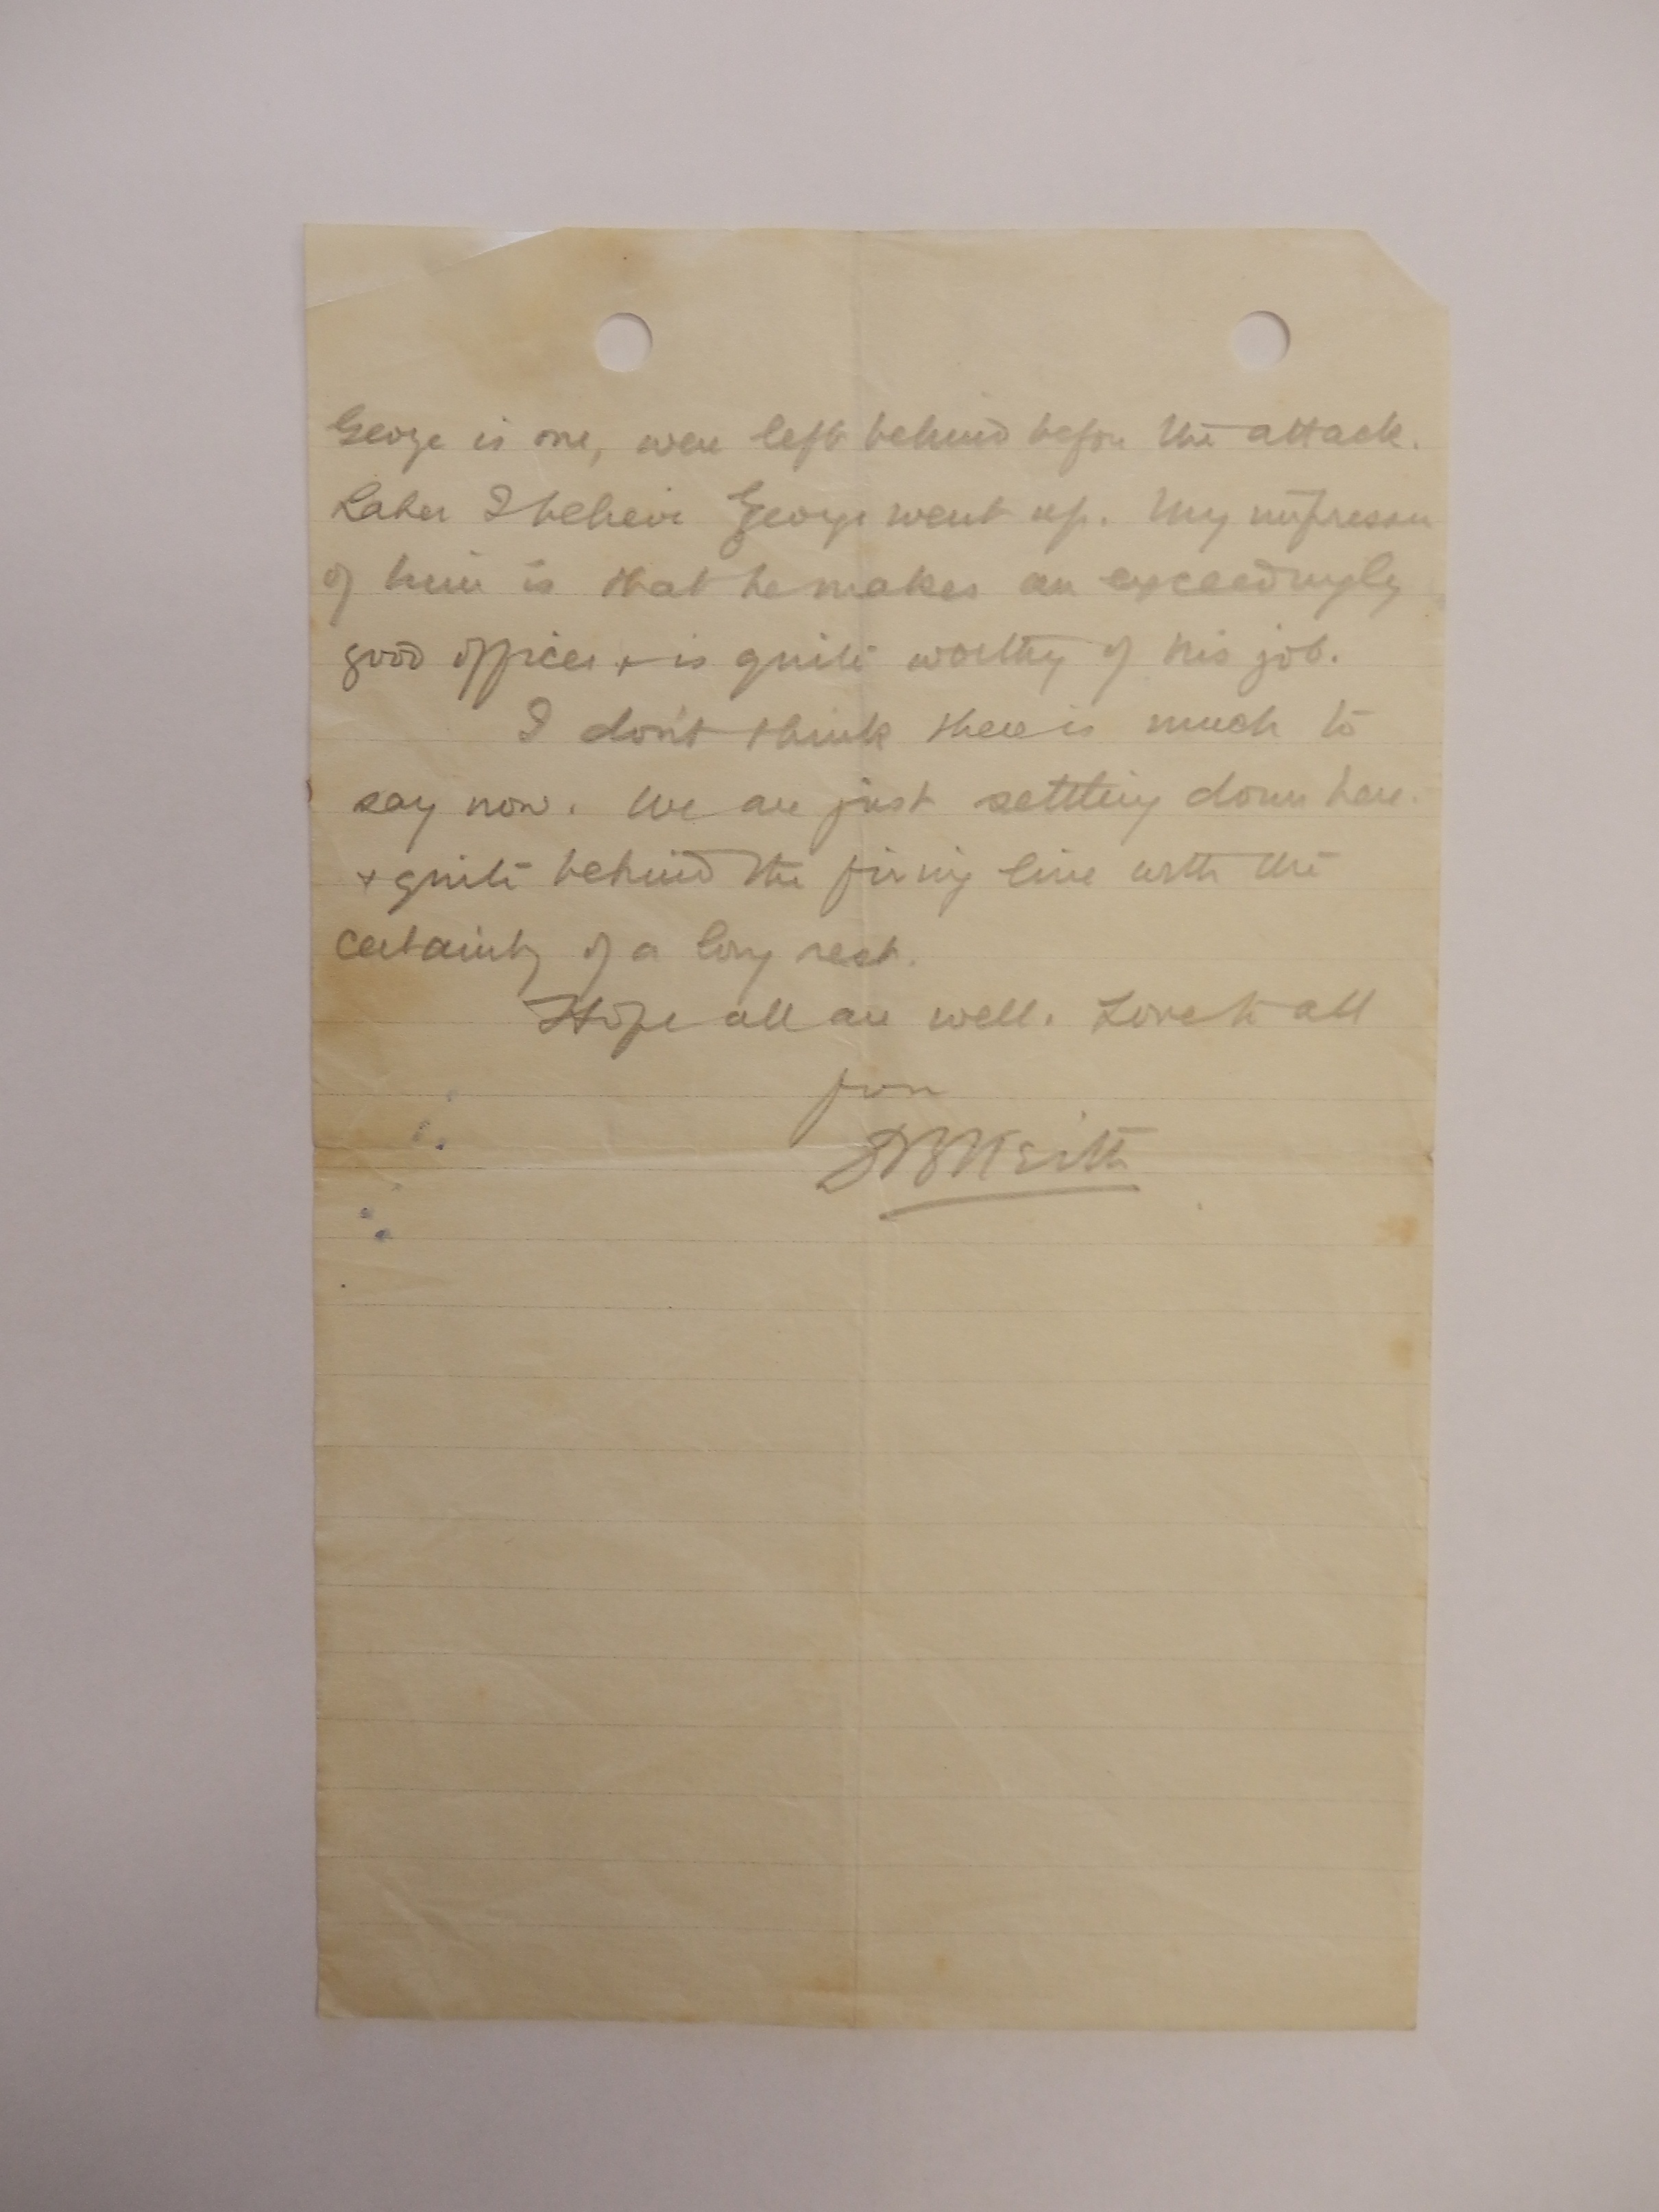 George is one, were left behind before the attack.
Later I believe George went up. My impression
of him is that he makes an exceedingly
good officer & is quite worthy of his job.
I don't think there is much to
say now. We are just settling down here.
& quite behind the firing line with the
certainty of a long rest.
Hope all are well. Love to all
from
Keith